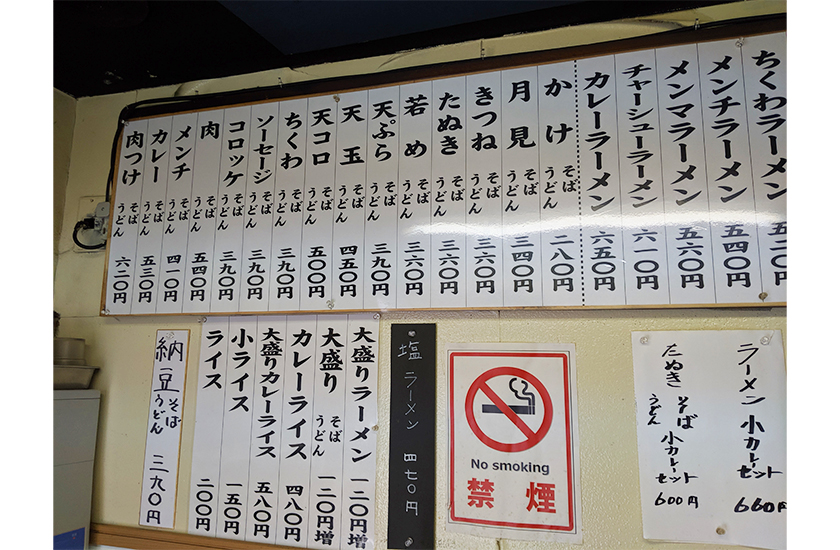 ちくわラーメン 五二〇円
メンチラーメン 五四〇円
メンマラーメン 五六〇円
チャーシューラーメン 六一〇円
カレーラーメン 六五〇円
かけ そば うどん 二八〇円
月見 そば うどん 三四〇円
きつね そば うどん 三六〇円
たぬき そば うどん 三六〇円
若め そば うどん 三六〇円
天ぷら そば うどん 三九〇円
天玉 そば うどん 四五〇円
天コロ そば うどん 五〇〇円
ちくわ そば うどん 三九〇円
ソーセージ そば うどん 三九〇円
コロッケ そば うどん 三九〇円
肉 そば うどん 五四〇円
メンチ そば うどん 四一〇円
カレー そば うどん 五三〇円
肉つけ そば うどん 六二〇円
ラーメン 小カレーセット 660円
たぬき そば うどん 小カレーセット 600円
No smoking
禁煙
塩ラーメン 四七〇円
大盛りラーメン 一二〇円増
大盛り そば うどん 一二〇円増
カレーライス 四八〇円
大盛りカレーライス 五八〇円
小ライス 一五〇円
ライス 二〇〇円
納豆 そば うどん 三九〇円